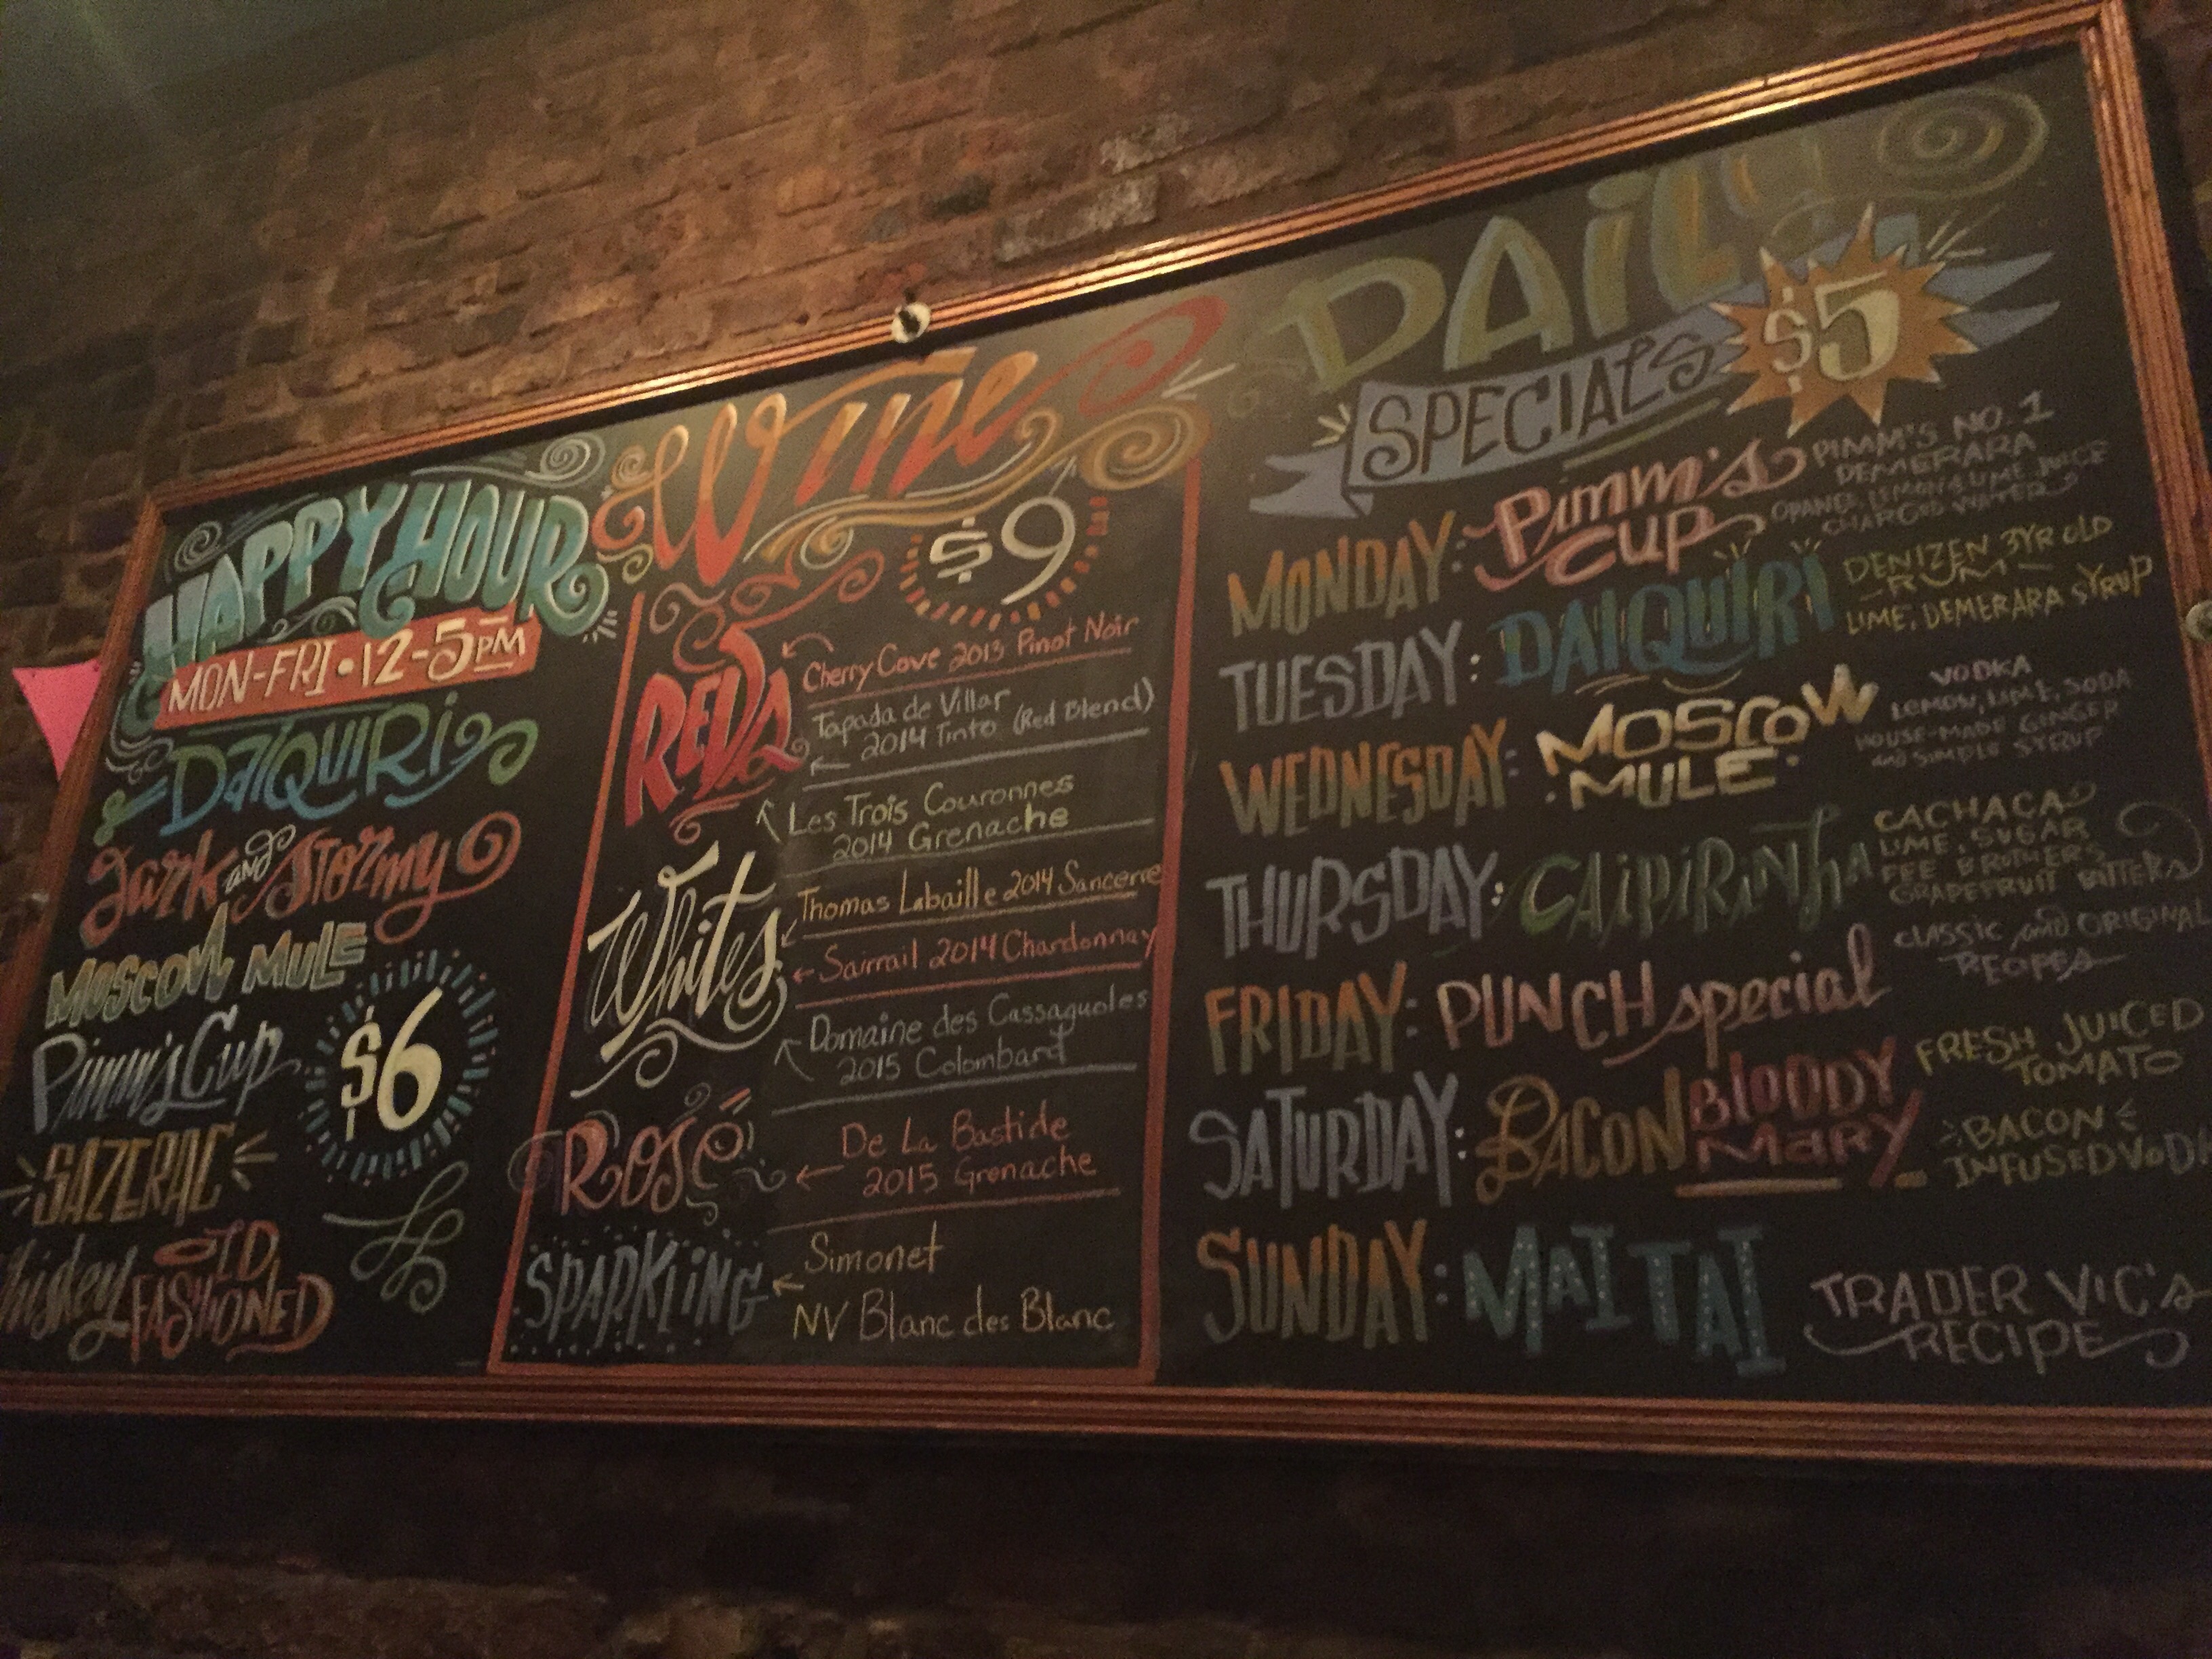 HAPPY HOUR
MON-FRI • 12-5PM
DAIQUIRI
Dark AND Stormy
MOSCOW MULE
Pimm's Cup
$6
SAZERAC
Whiskey OLD
FASHIONED
Wine
$9
REDS
Cherry Cove 2013 Pinot Noir
Tapada de Villar
2014 Tinto (Red Blend)
Les Trois Couronnes
2014 Grenache
Whites
Thomas Labaille 2014 Sancerre
Sairrail 2014 Chardonnay
Domaine des Cassagnoles
2015 Colombard
Rosé
De La Bastide
2015 Grenache
SPARKLING
Simonet
NV Blanc des Blanc
DAILY
SPECIALS $5
MONDAY: Pimm's CUP
PIMM'S NO. 1
DEMERARA
ORANGE, LEMON & LIME JUICE
CHARGED WATER
TUESDAY: DAIQUIRI
DENIZEN 3YR OLD
RUM
LIME, DEMERARA SYRUP
WEDNESDAY: MOSCOW MULE
VODKA
LEMON, LIME, SODA
HOUSE-MADE GINGER
and SIMPLE SYRUP
THURSDAY: CAIPIRINHA
CACHACA
LIME, SUGAR
FEE BROTHERS
GRAPEFRUIT BITTERS
FRIDAY: PUNCH special
CLASSIC and ORIGINAL
RECIPES
SATURDAY: BACON BLOODY MARY
FRESH JUICED
TOMATO
BACON
INFUSED VODKA
SUNDAY: MAI TAI
TRADER VIC'S
RECIPE